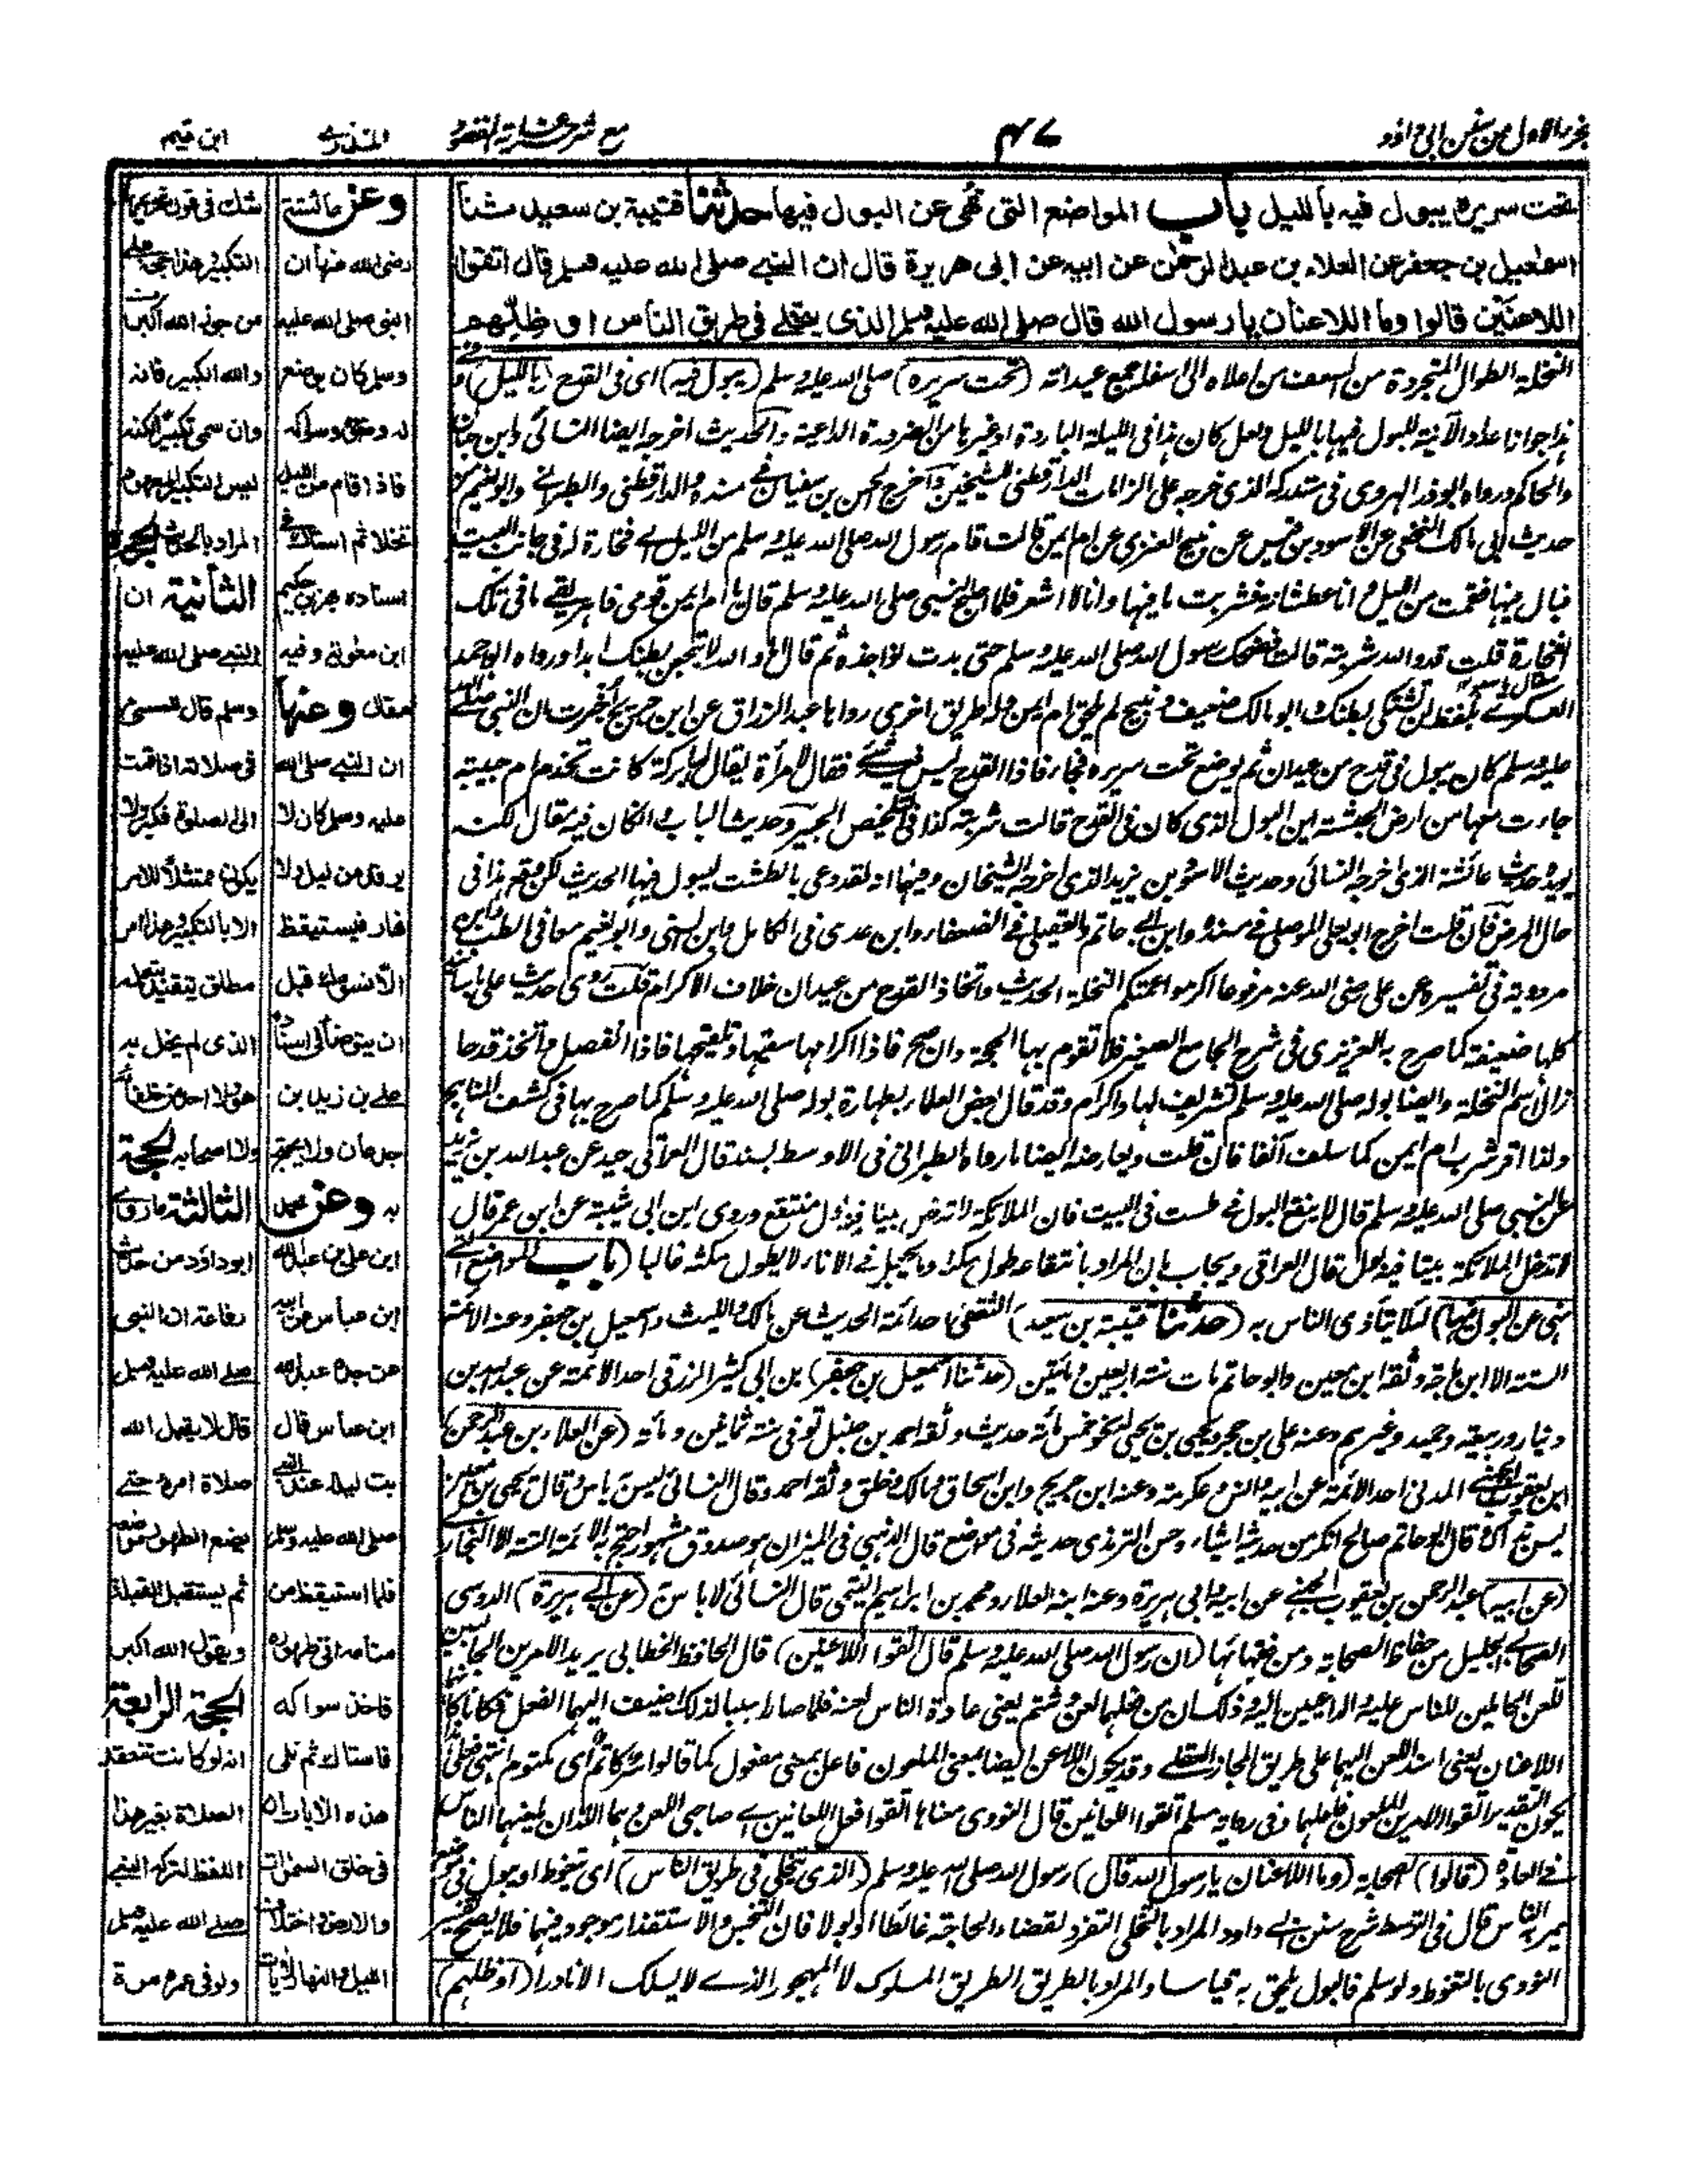 الجزء الاول من سنن ابی داؤد
۴۷
مع شرحه غاية المقصود
المنذری
ابن قیم
تحت سريره يبول فيه بالليل باب المواضع التی نُهی عن البول فيها حدثنا قتيبة بن سعيد ثنا
اسمٰعيل بن جعفر عن العلاء بن عبد الرحمٰن عن ابيه عن ابی هريرة قال ان النبی صلى الله عليه وسلم قال اتقوا
اللاعنَيْن قالوا وما اللاعنان يا رسول الله قال صلى الله عليه وسلم الذی يتخلى فی طريق الناس او ظلِّهم
النخلة الطوال المتجردة من السعف من اعلاه الى اسفله جمع عيدانة (تحت سريره) صلى الله عليه وسلم (يبول فيه) ای فی القدح (بالليل) و
والحاكم ورواه ابوذر الهروی فی مستدركه الذی خرجه على الزامات الدارقطنی للشيخين وآخرج الحسن بن سفيان فی مسنده والدارقطنی والطبرانی وابونعيم
حديث ابی مالك النخعی عن الاسود بن قيس عن نبيح العنزی عن ام ايمن قالت قام رسول الله صلى الله عليه وسلم من الليل الى فخارة له فی جانب البيت
فبال فيها فقمت من الليل وانا عطشانة فشربت ما فيها وانا لا اشعر فلما اصبح النبی صلى الله عليه وسلم قال يا ام ايمن قومی فاهريقی ما فی تلك
الفخارة قلت قد والله شربته قالت فضحك رسول الله صلى الله عليه وسلم حتى بدت نواجذه ثم قال اما والله لا تيجعن بطنك ابدا ورواه ابو احمد
العسكری بلفظ لن تشتكی بطنك وابو مالك ضعيف ونبيح لم يلحق ام ايمن وله طريق اخرى رواها عبد الرزاق عن ابن جريج اخبرت ان النبی صلى الله
عليه وسلم كان يبول فی قدح من عيدان ثم يوضع تحت سريره فجاء فاذا القدح ليس فيه شیء فقال لامرأة يقال لها بركة كانت تخدم ام حبيبة
جاءت معها من ارض الحبشة اين البول الذی كان فی القدح قالت شربته كذا فی التلخيص الحبير وحديث الباب وان كان فيه مقال لكنه
يؤيده حديث عائشة الذی اخرجه النسائی وحديث الاسود بن يزيد الذی اخرجه الشيخان وفيها انه لقد دعی بالطشت ليبول فيها الحديث لكن وقع هذا فی
حال المرض فان قلت اخرج ابو يعلى الموصلی فی مسنده وابن ابی حاتم والعقيلی فی الضعفاء وابن عدی فی الكامل وابن السنی وابو نعيم معا فی الطب وابن
مردويه فی تفسيره عن علی رضی الله عنه مرفوعا اكرموا عمتكم النخلة الحديث واتخاذ القدح من عيدان خلاف الاكرام قلت روی حديث علی باسانيد
كلها ضعيفة كما صرح به العزيزی فی شرح الجامع الصغير فلا تقوم بها الحجة وان صح فاذا اكرامها سقيها وتلقيحها فاذا انفصل واتخذ قدحا
زال اسم النخلة وايضا بوله صلى الله عليه وسلم تشريف لها واكرام وقد قال بعض العلماء بطهارة بوله صلى الله عليه وسلم كما صرح بها فی كشف
ولذا اقر شرب ام ايمن كما سلف آنفا فان قلت ويعارضه ايضا ما رواه الطبرانی فی الاوسط بسند قال العراقی جيد عن عبد الله بن يزيد
عن النبی صلى الله عليه وسلم قال لا ينقع البول فی طست فی البيت فان الملائكة لا تدخل بيتا فيه بول منتقع وروی ابن ابی شيبة عن ابن عمر قال
لا تدخل الملائكة بيتا فيه بول قال العراقی ويجاب بان المراد بانتقاعه طول مكثه وما يجعل فی الاناء لا يطول مكثه غالبا (باب المواضع التی
نهی عن البول فيها) لئلا يتأذى الناس به (حدثنا قتيبة بن سعيد) الثقفی احد ائمة الحديث عن مالك والليث واسمعيل بن جعفر وعنه الائمة
الستة الا ابن ماجة وثقه ابن معين وابو حاتم مات سنة اربعين ومائتين (حدثنا اسمعيل بن جعفر) بن ابی كثير الزرقی احد الائمة عن عبد الله بن
دينار وربيعة وحميد وغيرهم وعنه علی بن حجر ويحيى بن يحيى لنحو خمس مائة حديث وثقه احمد بن حنبل توفی سنة ثمانين ومائة (عن العلاء بن عبد الرحمن)
ابن يعقوب الجهنی المدنی احد الائمة عن ابيه وانس وعكرمة وعنه ابن جريج وابن اسحاق ومالك وخلق وثقه احمد وقال النسائی ليس به باس وقال يحيى بن معين
ليس بذاك وقال ابو حاتم صالح انكر من حديثه اشياء وحسن الترمذی حديثه فی موضع قال الذهبی فی الميزان هو صدوق مشهور احتج به الائمة الستة الا البخاری
(عن ابيه) عبد الرحمن بن يعقوب الجهنی عن ابيه وابی هريرة وعنه ابنه العلاء ومحمد بن ابراهيم التيمی قال النسائی لا باس به (عن ابی هريرة) الدوسی
الصحابی الجليل من حفاظ الصحابة ومن فقهائها (ان رسول الله صلى الله عليه وسلم قال اتقوا اللاعنين) قال الحافظ الخطابی يريد الامرين الجالبين
للعن الحاملين للناس عليه والداعيين اليه وذلك ان من فعلهما لعن وشتم يعنی عادة الناس لعنه فلما صارا سببا لذلك اضيف اليهما الفعل فكانا كانهما
اللاعنان يعنی اسند اللعن اليهما على طريق المجاز العقلی وقد يكون اللاعن ايضا بمعنى الملعون فاعل بمعنى مفعول كما قالوا سر كاتم ای مكتوم انتهى فعلى هذا
يكون التقدير اتقوا الامرين الملعون فاعلهما وفی رواية مسلم اتقوا اللعانين قال النووی معناها اتقوا فعل اللعانين ای صاحبی اللعن وهما اللذان يلعنهما الناس
فی العادة (قالوا) الصحابة (وما اللاعنان يا رسول الله قال) رسول الله صلى الله عليه وسلم (الذی يتخلى فی طريق الناس) ای يتغوط او يبول فی موضع
يمر به الناس قال فی التوسط شرح سنن ابی داود المراد بالتخلی التفرد لقضاء الحاجة غائطا او بولا فان التنجس والاستقذار موجود فيهما فلا يصح تفسير
النووی بالتغوط ولو سلم فالبول يلحق به قياسا والمراد بالطريق الطريق المسلوك لا المهجور الذی لا يسلك الا نادرا (او ظلهم)
وعن عائشة
رضی الله عنها ان
النبی صلى الله عليه
وسلم كان يوضع
له وضوؤه وسواكه
فاذا قام من الليل
تخلا ثم استاك وفی
اسناده بهز بن حكيم
ابن معٰوية وفيه
مقال وعنها
ان النبی صلى الله
عليه وسلم كان لا
يرقد من ليل ولا
نهار فيستيقظ
الّا تسوك قبل
ان يتوضأ فی اسناده
علی بن زيد بن
جدعان ولا يحتج
به وعن محمد
ابن علی بن عبد الله
ابن عباس عن ابيه
عن جده عبد الله
ابن عباس قال
بت ليلة عند النبی
صلى الله عليه وسلم
فلما استيقظ من
منامه اتى طهوره
فاخذ سواكه
فاستاك ثم تلى
هذه الاٰيات ان
فی خلق السمٰوات
والارض واختلاف
الليل والنهار لاٰيات
شك فی قوة تحريمها
التكبير
من جوز الله اكبر
والله الكبير فانه
وان سمی تكبيرا لكنه
ليس التكبير المعهود
المراد بالحديث الحجة
الثانية ان
النبی صلى الله عليه
وسلم قال للمسیء
فی صلاته اذا قمت
الى الصلوة فكبر ولا
يكون ممتثلا للامر
الا بالتكبير وهذا امر
مطلق يتقيد بفعله
الذی لم يخل به
هو ولا احد من خلفائه
ولا اصحابه الحجة
الثالثة ما روى
ابو داؤد من حديث
رفاعة ان النبی
صلى الله عليه وسلم
قال لا يقبل الله
صلاة امرء حتى
يضع الطهور مواضعه
ثم يستقبل القبلة
ويقول الله اكبر
الحجة الرابعة
انه لو كانت تنعقد
الصلاة بغير هذا
اللفظ لتركه النبی
صلى الله عليه وسلم
ولو فی عمره مرة